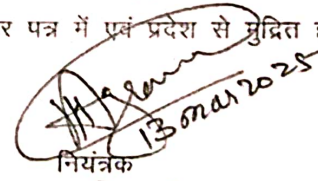 र पत्र में एवं प्रदेश से मुद्रित ह
13 mar 2025
नियंत्रक